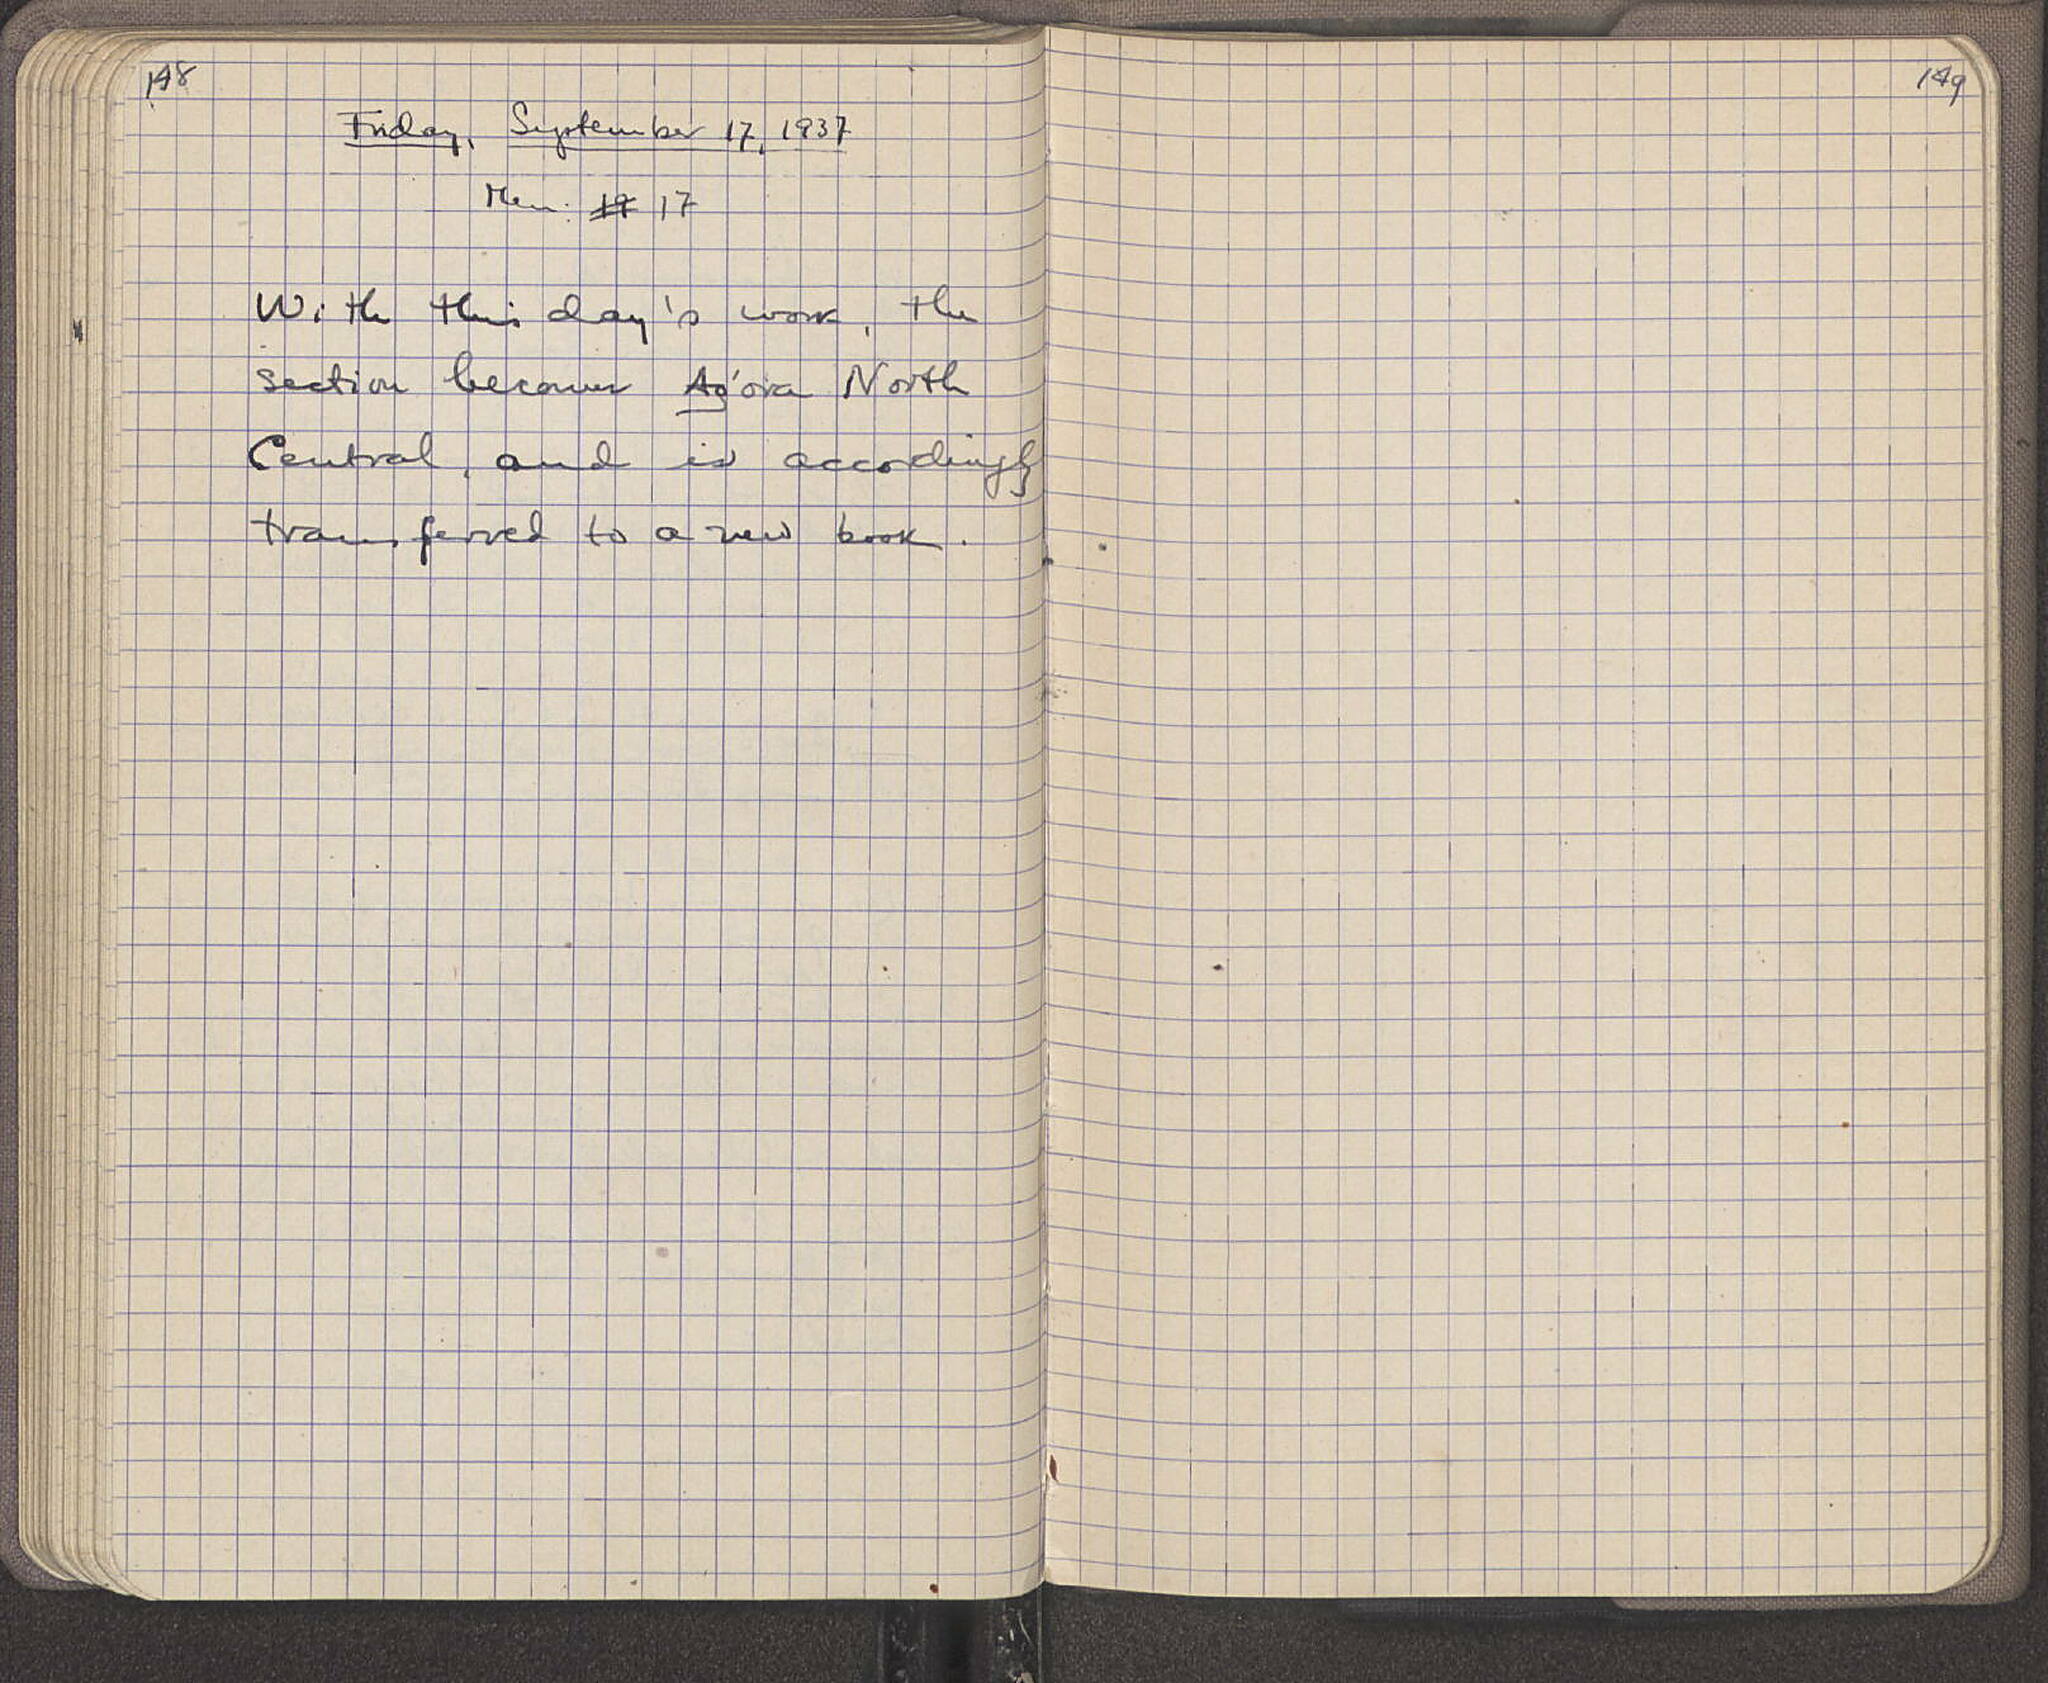 148
Friday, September 17, 1937
Men: 19 17
With this day's work, the
section becomes Ag'ora North
Central, and is accordingly
transferred to a new book.
149